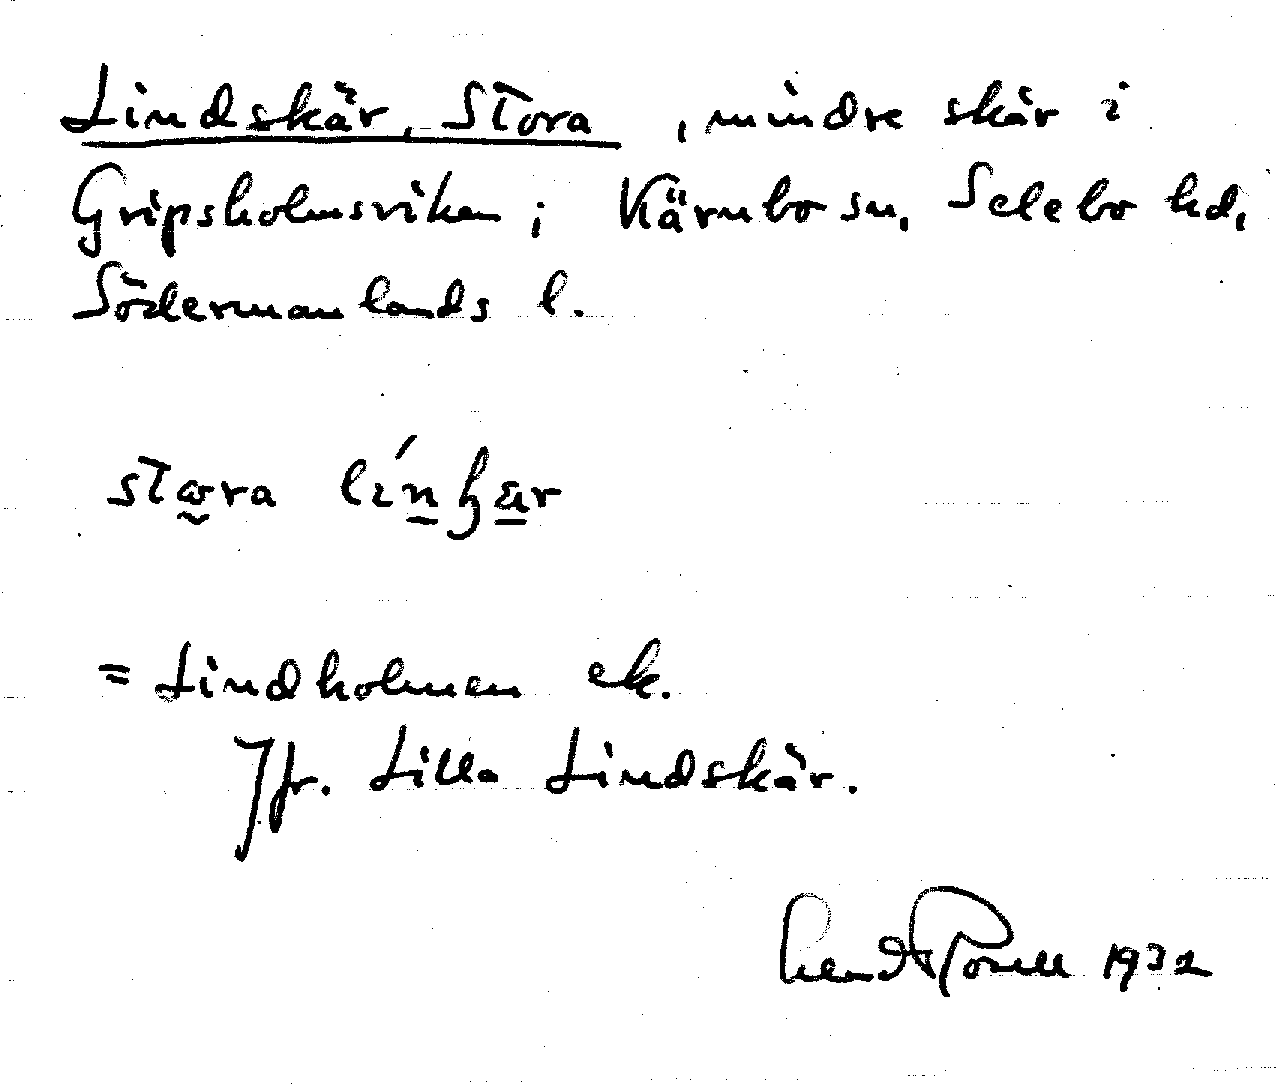 Lindskär, Stora, mindre skär i
Gripsholmsviken; Kärnbo sn, Selebo hd,
Södermanlands l.
= Lindholmen ek.
Jfr. Lilla Lindskär.
1932